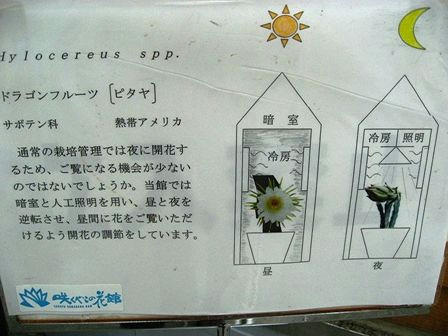 Hylocereus spp.
ドラゴンフルーツ [ピタヤ]
サボテン科 熱帯アメリカ
通常の栽培管理では夜に開花す
るため、ご覧になる機会が少ない
のではないでしょうか。当館では
暗室と人工照明を用い、昼と夜を
逆転させ、昼間に花をご覧いただ
けるよう開花の調節をしています。
暗室
冷房
昼
冷房 照明
夜
咲くやこの花館